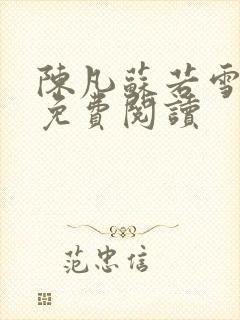 陳凡蘇若雪
免費閱讀
范忠信